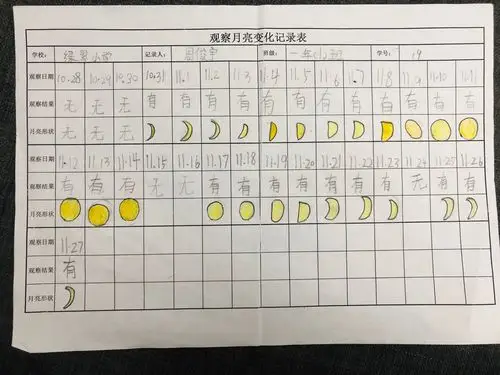 观察月亮变化记录表
学校: 绿翠小学 记录人: 周俊宇 班级: 一年 班 学号: 19
观察日期 10.28 10.29 10.30 10.31 11.1 11.2 11.3 11.4 11.5 11.6 11.7 11.8 11.9 11.10 11.11
观察结果 无 无 无 有 有 有 有 有 有 有 有 有 有 有 有
月亮形状 无 无 无
观察日期 11.12 11.13 11.14 11.15 11.16 11.17 11.18 11.19 11.20 11.21 11.22 11.23 11.24 11.25 11.26
观察结果 有 有 有 无 无 有 有 有 有 有 有 有 无 有 有
月亮形状
观察日期 11.27
观察结果 有
月亮形状